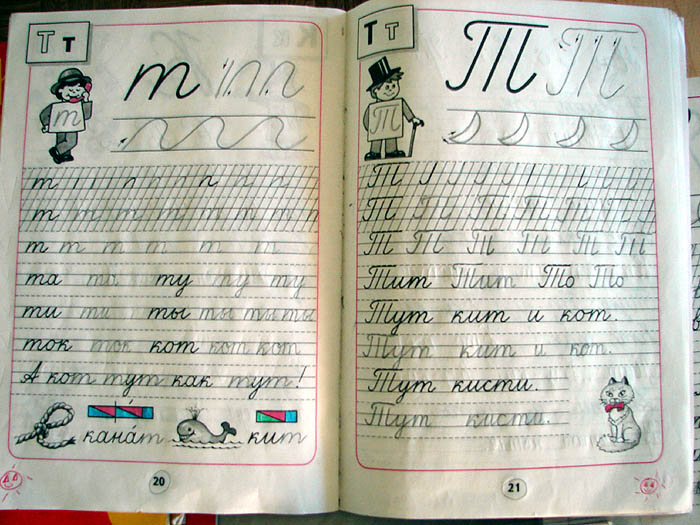 Т т
т
т
т
т т т т т т т
т т т т т т
та та ту ту ту
ти ти ты ты ты ты
ток ток кот кот кот
А кот тут как тут!
кана́т кит
20
Т т
Т Т
Т
Т
Т Т Т Т Т Т
Т Т Т Т Т Т
Тит Тит То То
Тут кит и кот.
Тут кит и кот.
Тут кисти.
Тут кисти.
21